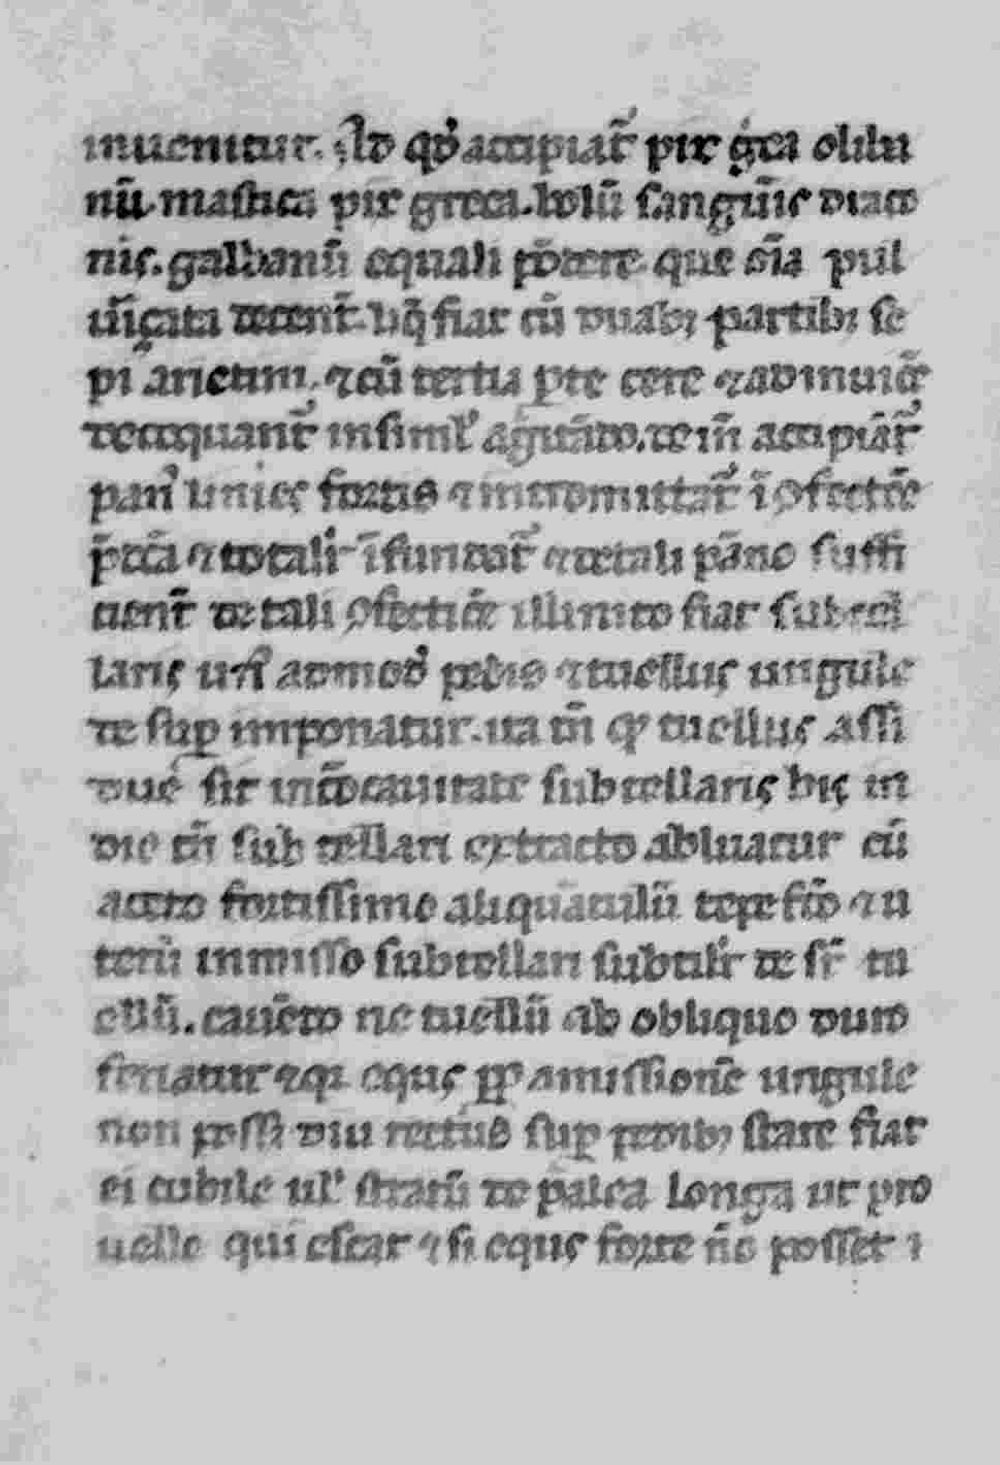 inuenitur. Ad qđ accipiat᷑ pix g̍ca olibu
nū. mastica pix greca. bolū sanguīis draco
nis. galbanū equali põdere que oīa pul
ūiçata decent᷑. Hq̄ fiat cū duab; partib; se
pi arietini, ⁊ cū tertia ꝑte cere ⁊ ad inuicē
decoquant᷑ insiml' agitādo. de in̄ accipiat᷑
pan᷒ lineꝰ fortis ⁊ intromittat᷑ ī ꝯfectōe
p̄dcā ⁊ totalit̾ īfundat᷑ ⁊ de tali pāno suffi
cient᷑ de tali ꝯfectiōe illinito fiat subtel
laris ad modū pedis ⁊ tuellus ungule
de suꝑ imponatur. ita tn̄ ꝙ tuellus assi
due sit in cōcauitate subtellaris bis in
die tn̄ sub tellari extracto abluatur cū
aceto fortissimo aliquātulū tepefcō ⁊ i
terū inmisso subtellari subtilit̾ tu
ellū. cauēto ne tuellū ab obliquo duro
feriatur ⁊ qꝛ equs ꝓpꝑ amissionē ungule
non possꝫ diu rectus suꝑ pedib; stare fiat
ei cubile ul' stratū de palea longa ut pro
uelle quiescat ⁊ si equs forte nō posset i